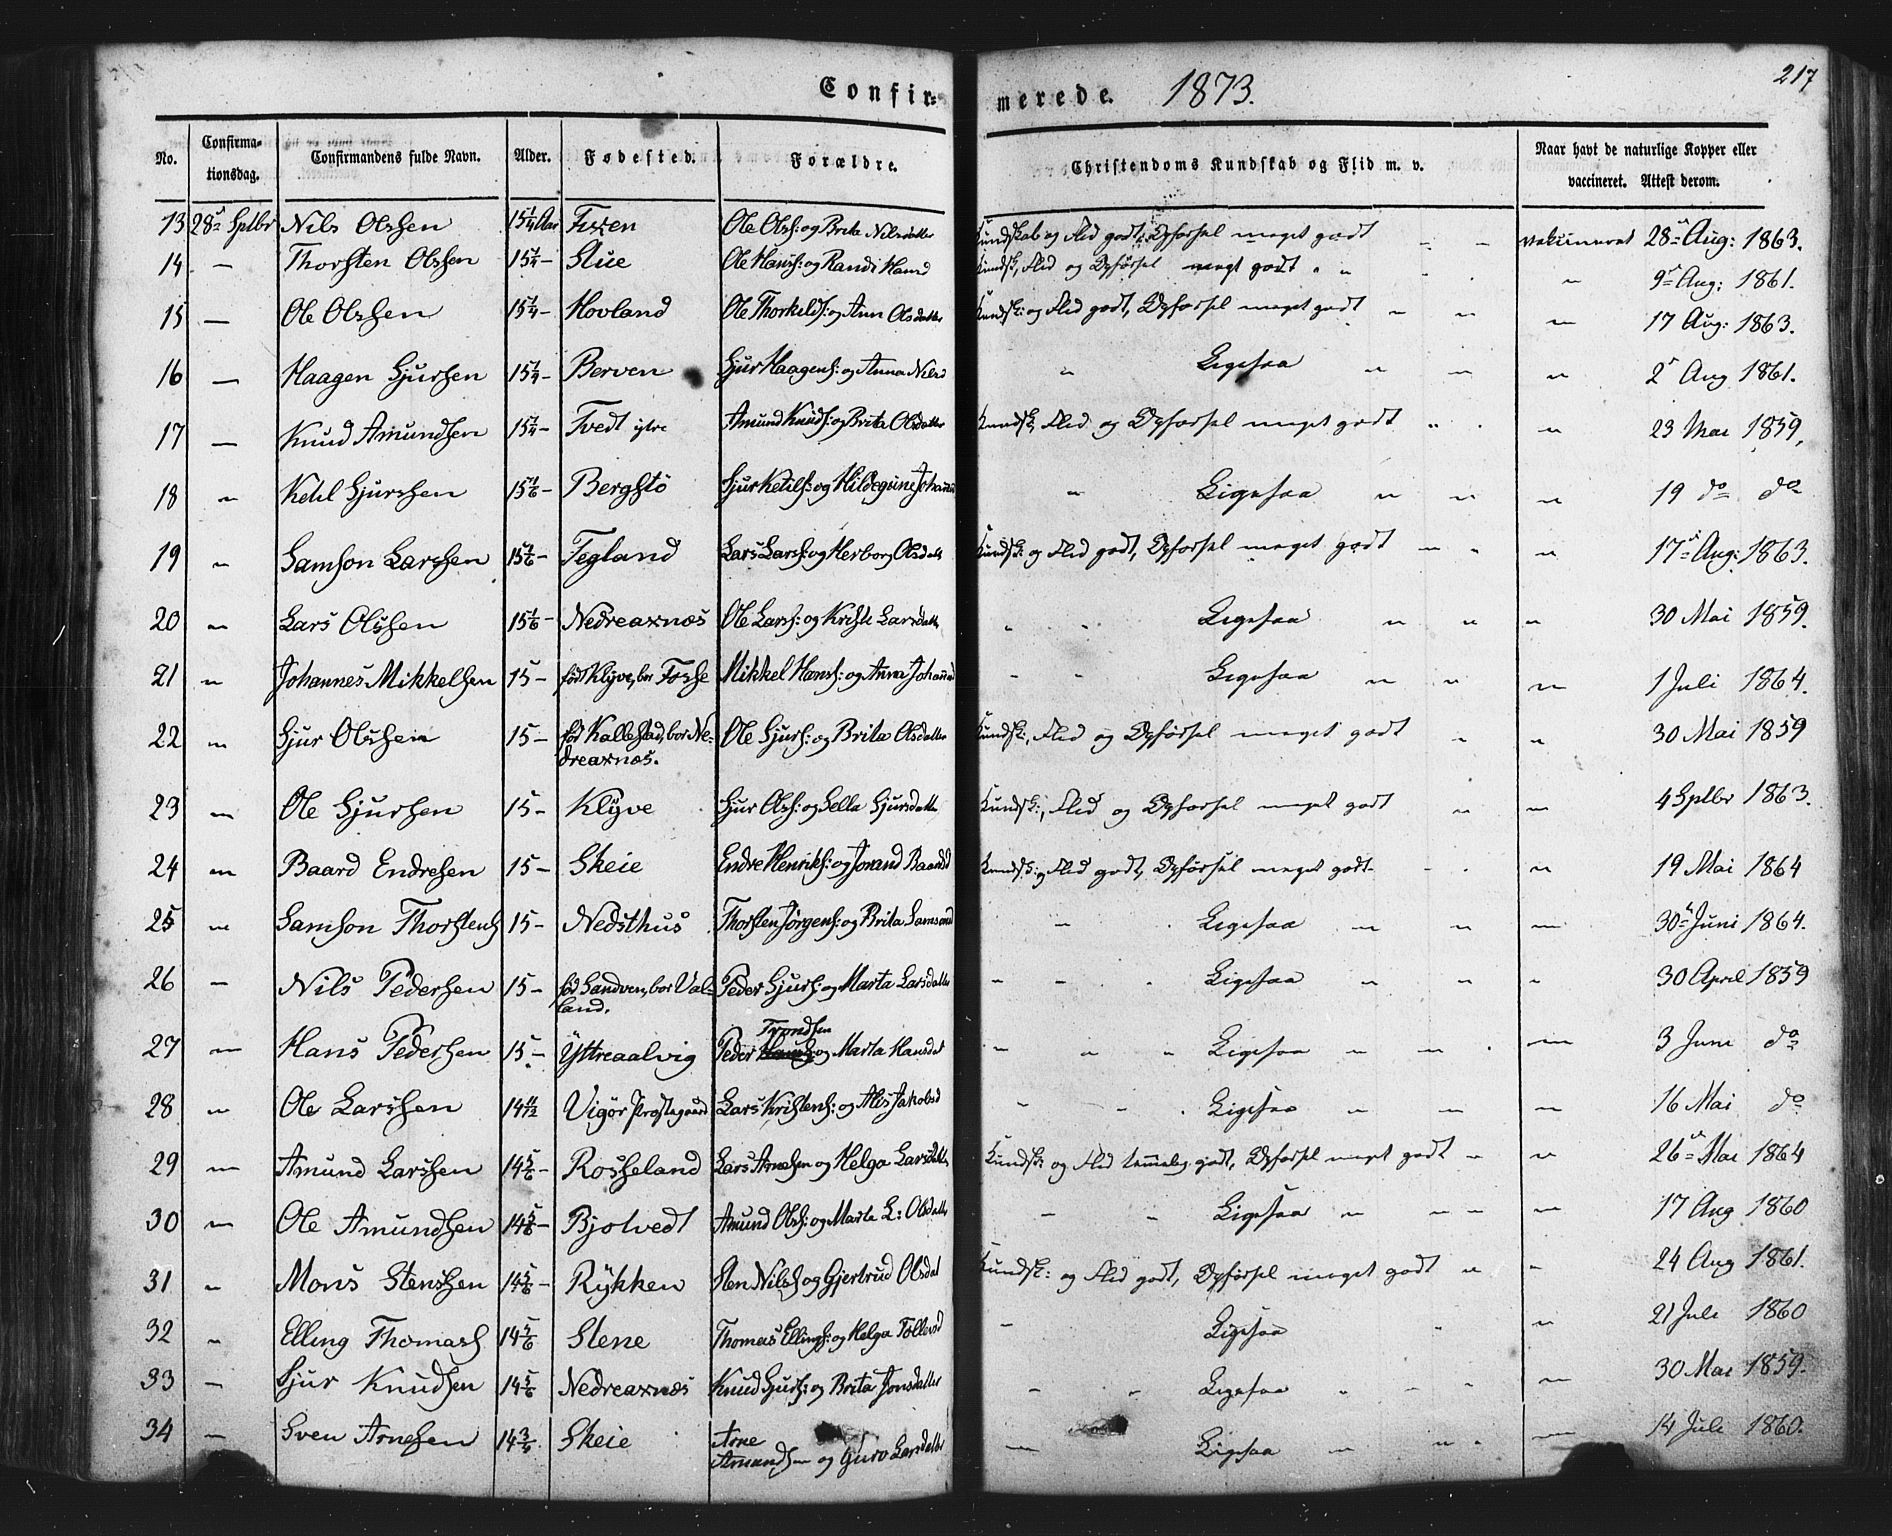 Confir-
merede. 1873.
217
No.
Confirma-
tionsdag.
Confirmandens fulde Navn.
Alder.
Fødested.
Forældre.
Christendoms Kundskab og Flid m. v.
Naar havt de naturlige Kopper eller
vaccineret. Attest derom.
13 28de Sptbr Nils Olssen 15 1/4 Aar Fixen Ole Olss: og Brita Nilsdatter Kundskab og Flid godt, Opførsel meget godt " " vakcineret 28de Aug: 1863.
14 — Thorsten Olssen 15 1/4 - Slue Ole Hanss: og Randi Hansd Kundsk, Flid og Opførsel meget godt " " " 9de Aug: 1861.
15 — Ole Olssen 15 1/4 - Hovland Ole Thorkelds: og Ann Olsdatter Kundsk: og Flid godt, Opførsel meget godt " " " 17 Aug: 1863.
16 — Haagen Sjursen 15 1/4 - Berven Sjur Haagens: og Anna Nilsd " Ligesaa " " " 2de Aug 1861.
17 — Knud Amundsen 15 1/4 - Tvedt ytre Amund Knuds: og Brita Olsdatter Kundsk, Flid og Opførsel meget godt " " " 23 Mai 1859,
18 " Ketil Sjurssen 15 1/6 - Bergstø Sjur Ketils: og Hildegune Johannesd " Ligesaa " " " 19 do do
19 " Samson Larssen 15 1/6 - Tegland Lars Larss: og Herborg Olsdatt Kundsk: og Flid godt, Opførsel meget godt " " " 17de Aug: 1863.
20 " Lars Olssen 15 1/6 - Nedreaxnæs Ole Larss: og Kriste Larsdatter " " Ligesaa " " " 30 Mai 1859.
21 " Johannes Mikkelsen 15 - født Klyve, bor Fosse Mikkel Hanss: og Anna Johannesd " " Ligesaa " " " 1 Juli 1864.
22 " Sjur Olssen 15 - fød Kallestad, bor Ne-
dreaxnæs. Ole Sjurs: og Brita Olsdatter Kundsk:, Flid og Opførsel meget godt " " 30 Mai 1859
23 " Ole Sjursen 15 - Klyve Sjur Olss: og Sella Sjursdatter Kundsk:, Flid og Opførsel meget godt " " 4 Sptbr 1863.
24 " Baard Endresen 15 - Skeie Endre Henriks: og Jorand Baardsd Kundsk: og Flid godt, Opførsel meget godt - " " 19 Mai 1864
25 " Samson Thorstens 15 - Nedsthus Thorsten Jørgens: og Brita Samsond " " Ligesaa " " " 30de Juni 1864.
26 " Nils Pedersen 15 - fød Sandven, bor Val-
land. Peder Sjurs: og Marta Larsdatter " " " Ligesaa " " " 30 April 1859
27 " Hans Pedersen 15 - Yttreaalvig Peder Trondsen og Marta Hansdat " " " Ligesaa " " " 3 Juni do
28 " Ole Larssen 14 11/12 Vigør Præstegaard Lars Kristens: og Alis Jakobsd " " " Ligesaa " " " 16 Mai do
29 " Amund Larssen 14 5/6 - Rosseland Lars Arnesen og Helga Larsdatter Kundsk: og Flid temmelig godt, Opførsel meget godt " " 26de Mai 1864
30 " Ole Amundsen 14 5/6 - Bjotvedt Amund Olss: og Marta L: Olsdatter " " Ligesaa " " " 17 Aug 1860
31 " Mons Stenssen 14 5/6 - Rykken Sten Nilss og Gjertrud Olsdat Kundsk: og Flid godt, Opførsel meget godt " " 24 Aug 1861.
32 " Elling Thomass 14 5/6 Stene Thomas Ellings: og Helga Tollevsd " Ligesaa " " 21 Juli 1860
33 — Sjur Knudsen 14 5/6 Nedreaxnæs Knud Sjurs: og Brita Jonsdatter " " Ligesaa " " " " 30 Mai 1859.
34 — Sven Arnesen 14 3/6 Skeie Arne
Amundsen og Guro Larsdatter " Ligesaa " " " 14 Juli 1860.